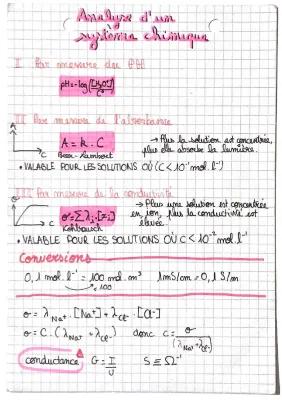 Analyse d'un
système chimique
I Par mesure du PH
pH = -log([H₃O⁺]/C°)
II Par mesure de l'absorbance
A
A = k . C
→ Plus la solution est concentrée,
plus elle absorbe la lumière.
C
Beer-Lambert
• VALABLE POUR LES SOLUTIONS OÙ (C < 10⁻² mol. l⁻¹)
III Par mesure de la conductivité
σ
σ = Σ λi . [Xi]
→ Plus une solution est concentrée
en ion, plus la conductivité est
élevée.
C
Kohlrausch
• VALABLE POUR LES SOLUTIONS OÙ C < 10⁻² mol. l⁻¹
Conversions
0,1 mol. l⁻¹ = 100 mol. m³ 1mS/cm = 0,1 S/m
σ = λNa⁺ . [Na⁺] + λCl⁻ . [Cl⁻]
σ = C . (λNa⁺ + λCl⁻) donc c = σ/(λNa⁺ + λCl⁻)
conductance G = I/U S ≡ Ω⁻¹